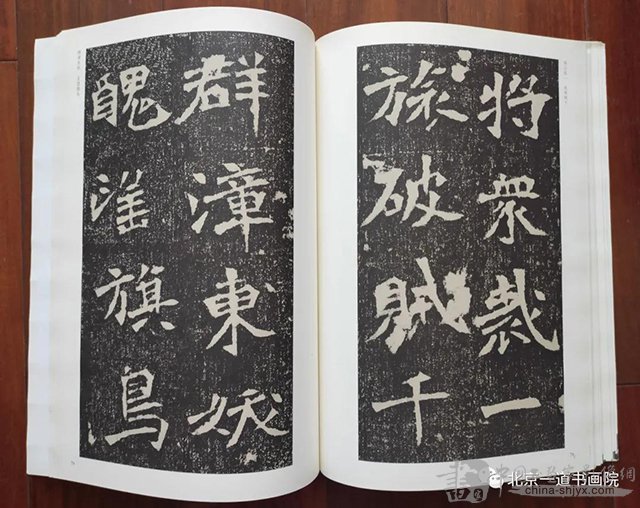 將衆裁一
旅破賊千
群漳東妖
醜滛旗鳥
北京一道书画院
china-shjyx.com